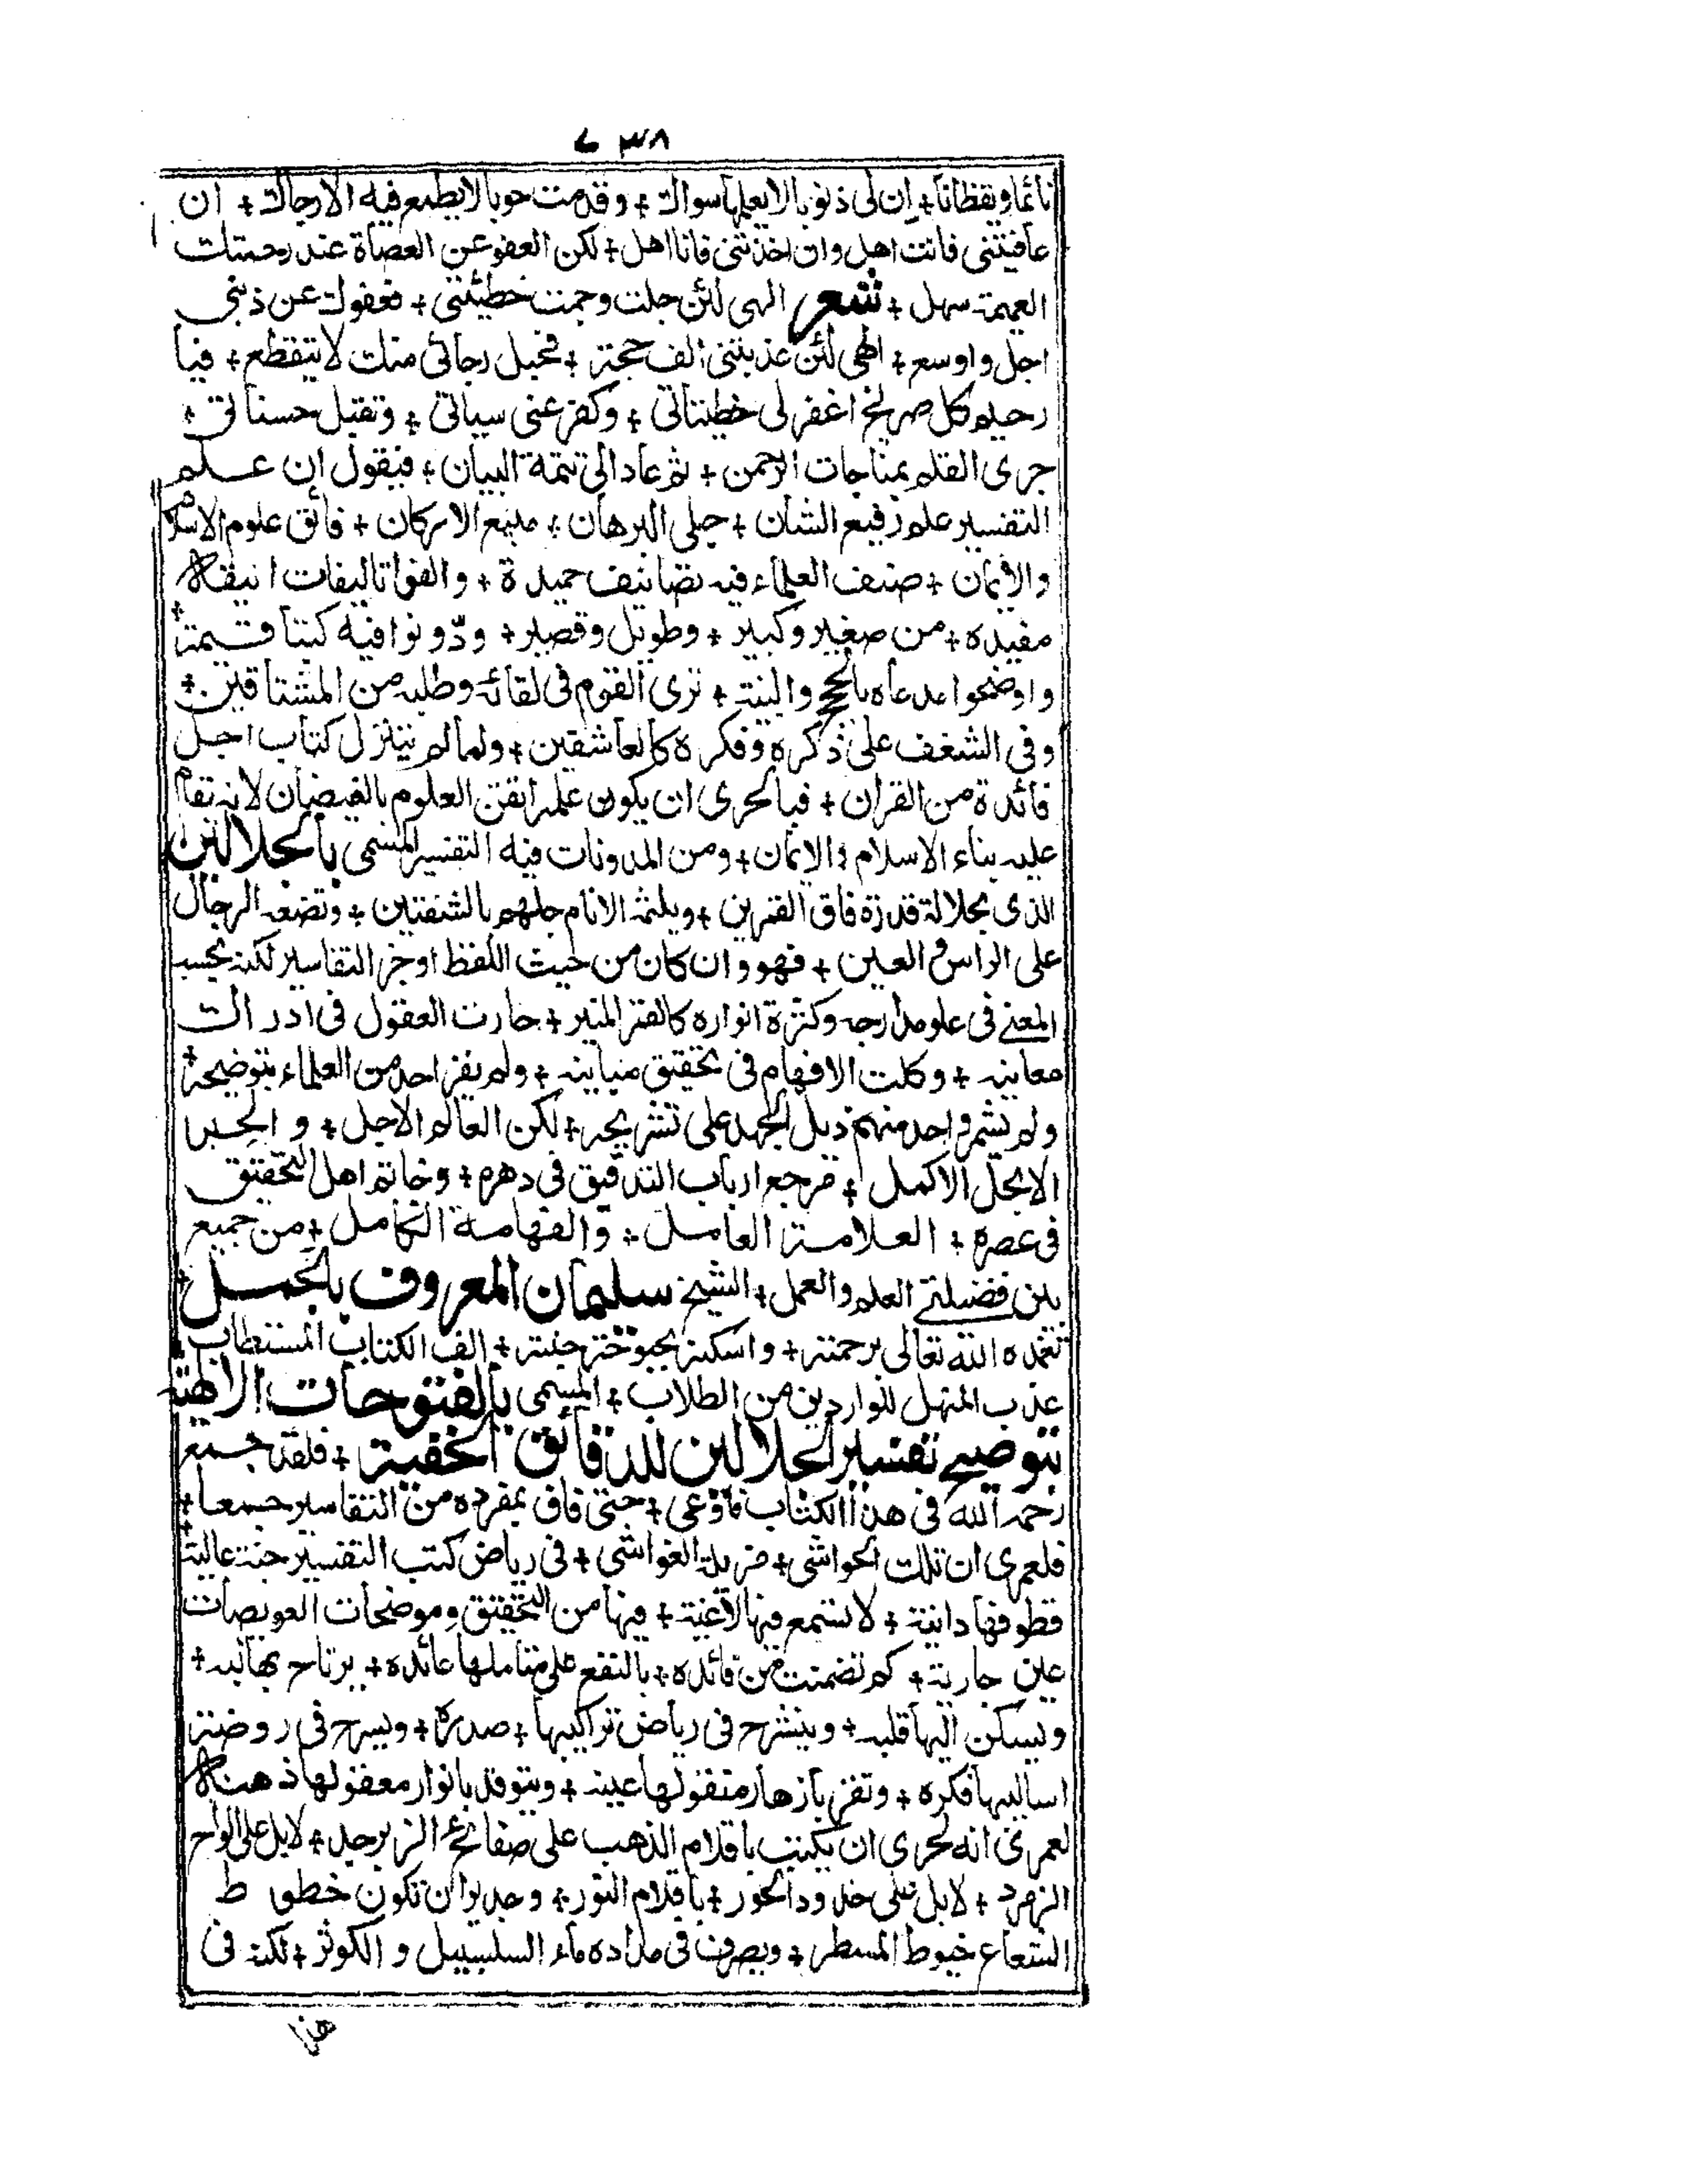 ٧٣٨
نائما ويقظانا + ان لى ذنوبا لا يعلمها سواك + وقدمت حوبا لا يطمع فيه الا رجاك + ان
عافيتنى فانت اهل وان اخذتنى فانا اهل + لكن العفو عن العصاة عند رحمتك
العميمة سهل + شعر الهى لئن جلت وجمت خطيئتى + فعفوك عن ذنبى
اجل واوسع + الهى لئن عذبتنى الف حجة + فحبل رجائى منك لا يتقطع + فيا
رحيم كل صريخ اغفر لى خطيئاتى + وكفر عنى سياتى + وتقبل حسناتى +
جرى القلم بمناجات الرحمن + ثم عاد الى تتمة البيان + فيقول ان علم
التفسير علم رفيع الشان + جلى البرهان + منيع الاركان + فائق علوم الاسلام
والايمان + صنف العلماء فيه تصانيف حميدة + والفوا تاليفات انيقة
مفيدة + من صغير وكبير + وطويل وقصير + ودونوا فيه كتبا قيمة +
واوضحوا مدعاه بالحجج والبينة + ترى القوم فى لقائه وطلبه من المشتاقين +
وفى الشغف على ذكره وفكره كالعاشقين + ولما لم يتنزل كتاب اجل
فائدة من القران + فبالحرى ان يكون علمه اتقن العلوم بالفيضان لانه تقام
عليه بناء الاسلام والايمان + ومن المدونات فيه التفسير المسمى بالجلالين
الذى بجلالة قدره فاق القمرين + ويلثمه الانام جلهم بالشفتين + وتضعه الرجال
على الراس والعين + فهو وان كان من حيث اللفظ اوجز التفاسير لكنه بحسب
المعنے فى علو مدارجه وكثرة انواره كالقمر المنير + حارت العقول فى ادراك
معانيه + وكلت الافهام فى تحقيق مبانيه + ولم يفز احد من العلماء بتوضيحه +
ولم يشمر واحد منهم ذيل الجهد على تشريحه + لكن العالم الاجل + و الحبر
الابجل الاكمل + مرجع ارباب التدقيق فى دهره + وخاتم اهل التحقيق
فى عصره + العلامة العامل + والفهامة الكامل + من جمع
بين فضيلتے العلم والعمل + الشيخ سليمان المعروف بالجمل +
تغمده الله تعالى برحمته + واسكنه بحبوحة جنته + الف الكتاب المستطاب
عذب المنهل للواردين من الطلاب + المسمى بالفتوحات الالهية
بتوضيح تفسير الجلالين للدقائق الخفية + فلقد جمع
رحمه الله فى هذا الكتاب فاوعى + حتى فاق بمفرده من التفاسير جمعا +
فلعمرى ان تلك الحواشى + مزيلة الغواشى + فى رياض كتب التفسير جنة عالية
قطوفها دانية + لا تسمع فيها لاغية + فيها من التحقيق وموضحات العويصات
عين جارية + كم تضمنت من فائده + بالنفع على متاملها عائده + يرتاح بها لبه +
ويسكن اليها قلبه + وينشرح فى رياض تراكيبها + صدره + ويسرح فى روضة
اساليبها فكره + وتقر بازهار منقولها عينه + ويتوقد بانوار معقولها ذهنه
لعمرى انه لحرى ان يكتب باقلام الذهب على صفائح الزبرجد + لا بل على الواح
الزمرد + لا بل على خدود الحور + باقلام النور + وجدير ان تكون خطوط
الشعاع خيوط المسطر + ويصرف فى مداده ماء السلسبيل و الكوثر + لكنه فى
هذا